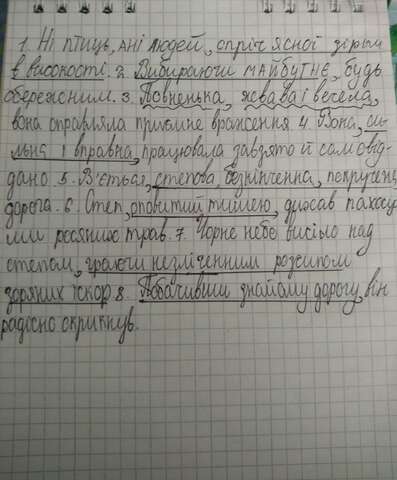 1. Ні птиць, ані людей, опріч ясної зірки
в високості. 2. Вибираючи майбутнє, будь
обережним. 3. Повненька, жвава і весела,
вона справляла приємне враження 4. Вона, си-
льна і вправна, працювала завзято й самовід-
дано. 5. В'ється, степова, безкінечна, покручена,
дорога. 6. Степ, оповитий тишею, дихав пахощ
ми росяних трав. 7. Чорне небо висіло над
степом, граючи незліченним розсипом
зоряних іскор 8. Побачивши знайому дорогу, він
радісно скрикнув.